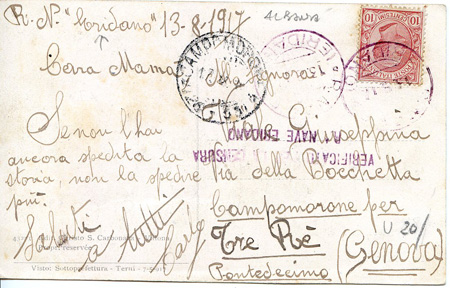 R. N. "Eridano" 13-8-1917
ALBANIA
Cara Mamma
Se non l'hai
ancora spedita la
storia, non la spedire
più.
Saluti
a tutti
Carlo
Alla Signora
Giuseppina
Via della Bocchetta
Campomorone per
Tre Rè
Pontedecimo
(Genova)
U 20/
VERIFICATO CENSURA
R. NAVE ERIDANO
Visto: Sottoprefettura - Terni -